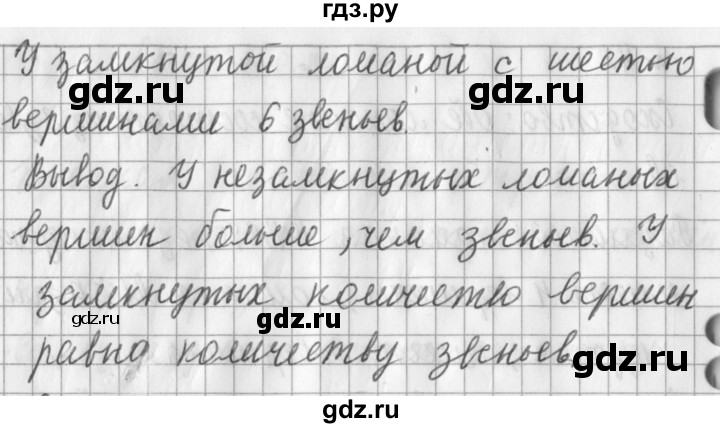 гдз.ру
У замкнутой ломаной с шестью
gdz.ru gdz.ru
вершинами 6 звеньев.
gdz.ru gdz.ru
Вывод. У незамкнутых ломаных
вершин больше, чем звеньев. У
gdz.ru gdz.ru
замкнутых количество вершин
gdz.ru gdz.ru
равно количеству звеньев.
gdz.ru
gdz.ru